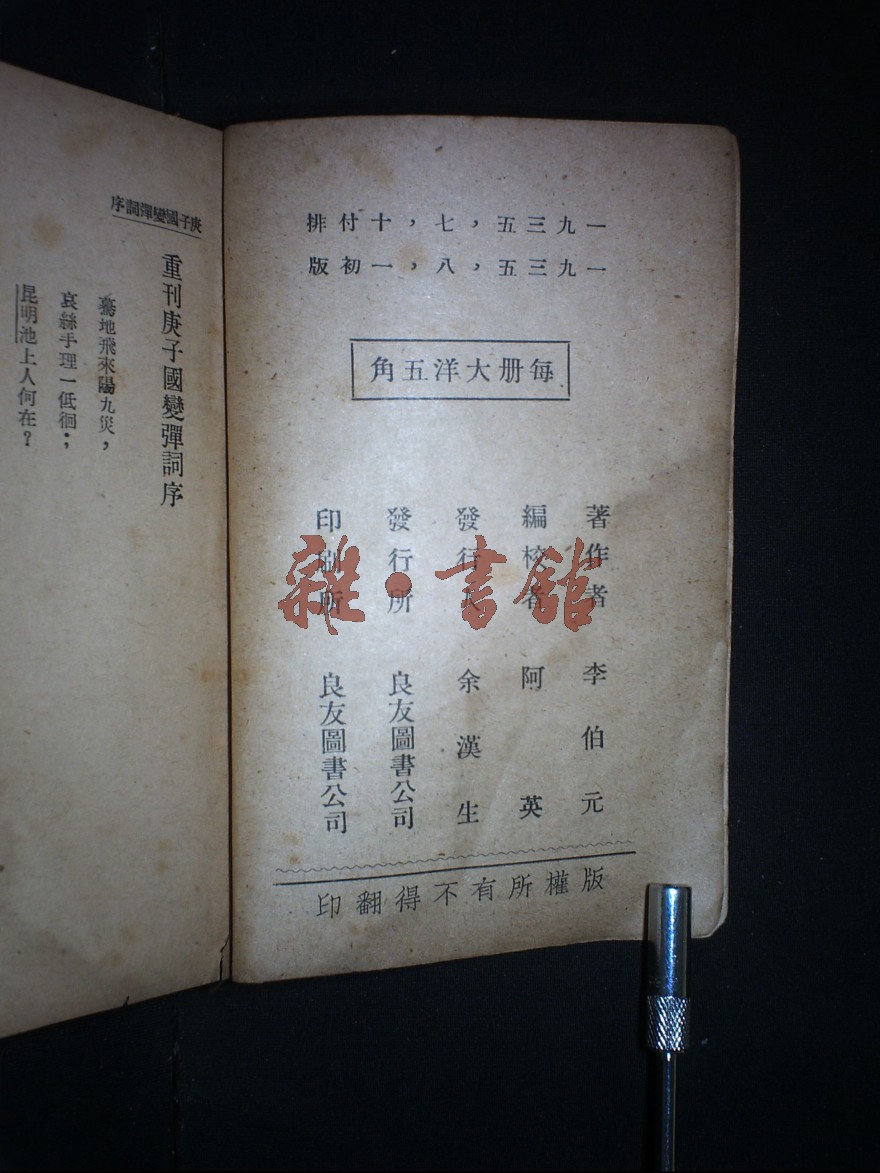 一九三五，七，十付排
一九三五，八，一初版
每册大洋五角
著作者 李伯元
編校者 阿英
發行人 余漢生
發行所 良友圖書公司
印刷所 良友圖書公司
版權所有不得翻印
雜·書館
庚子國變彈詞序
重刊庚子國變彈詞序
驀地飛來陽九災，
哀絲手理一低徊；
昆明池上人何在？